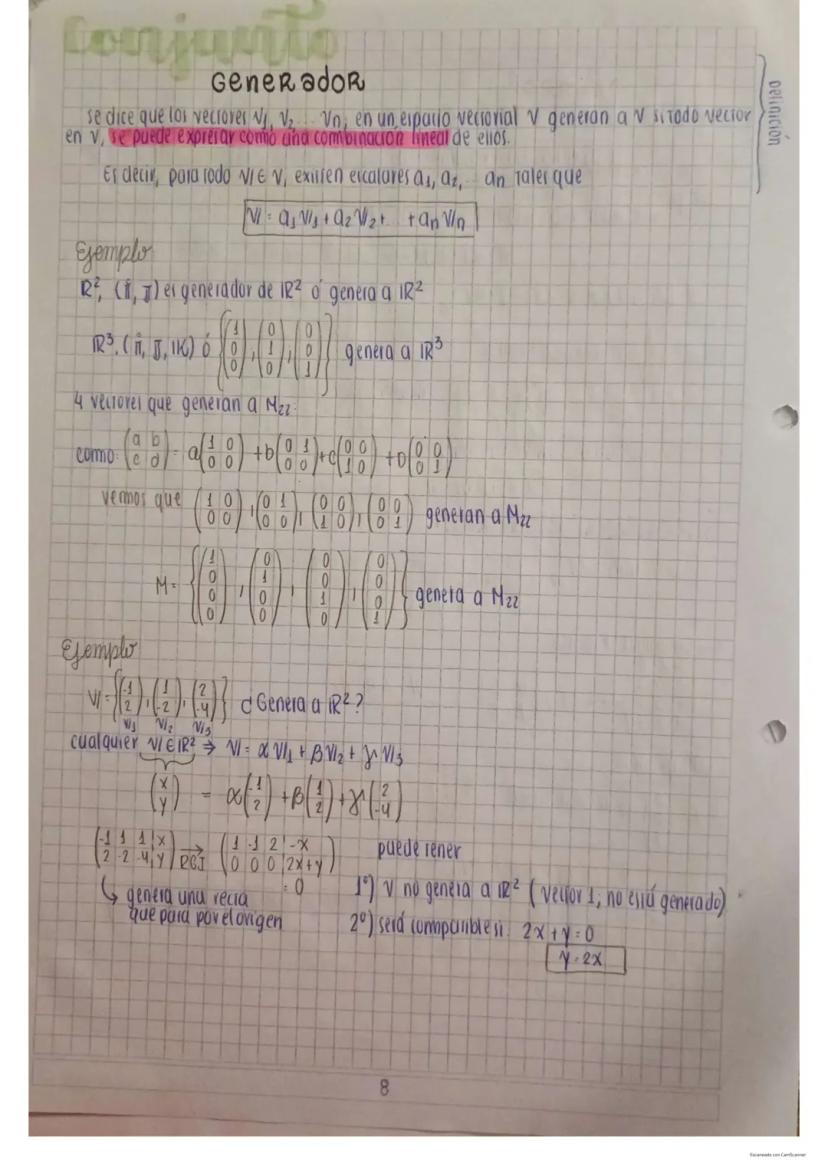 Conjunto
Generador
Definición
se dice que los vectores V1, V2 ... Vn, en un espacio vectorial V generan a V si todo vector
en V, se puede expresar como una combinación lineal de ellos.
Es decir, para todo V ∈ V, existen escalares a1, a2, ... an tales que
V = a1 V1 + a2 V2 + ... + an Vn
Ejemplo
R², (î, j) es generador de IR² ó genera a IR²
IR³, (î, j, IK) ó {(1 0 0), (0 1 0), (0 0 1)} genera a IR³
4 vectores que generan a M22:
como: (a b / c d) = a(1 0 / 0 0) + b(0 1 / 0 0) + c(0 0 / 1 0) + D(0 0 / 0 1)
vemos que (1 0 / 0 0), (0 1 / 0 0), (0 0 / 1 0), (0 0 / 0 1) generan a M22
M = {(1 0 0 0), (0 1 0 0), (0 0 1 0), (0 0 0 1)} genera a M22
Ejemplo
V = {(-1 2), (1 -2), (2 -4)} ¿Genera a IR²?
V1 V2 V3
cualquier V ∈ IR² ⇒ V = α V1 + β V2 + γ V3
(x y) = α(-1 2) + β(1 2) + γ(2 -4)
(-1 1 1 | x / 2 -2 -4 | y) → RGJ (1 -1 2 | -x / 0 0 0 | 2x+y) puede tener
= 0
↳ genera una recta
que pasa por el origen
1°) V no genera a IR² (vector 1, no está generado)
2°) será compatible si: 2x + y = 0
y = 2x
8
Escaneado con CamScanner